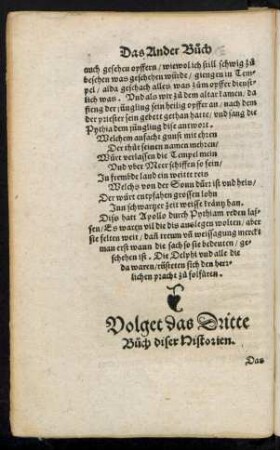 Das Ander Bůch
auch gesehen opffern / wiewol ich still schwig zů
besehen was geschehen würde / giengen in Tem-
pel / alda geschach alles was zům opffer dienst-
lich was. Vnd als wir zů dem altar kamen / da
fieng der jüngling sein heilig opffer an / nach dem
der priester sein gebett gethan hatte / vnd sang die
Pythia dem jüngling dise antwort.
Welchem anfachs gunst mit ehren
Der thůt seinen namen mehren /
Würt verlassen die Tempel mein
Vnd vber Meer schiffen so fein /
In frembde land ein weitte reis
Welchs von der Sonn dürr ist vnd heis /
Der würt entpfahen grossen lohn
Inn schwartzer zeit weisse krånz han.
Diß hatt Apollo durch Pythiam reden las-
sen / Es waren vil die dis auslegen wolten / aber
sie felten weit / dañ trewm vñ weissagung merckt
man erst wann die sach so sie bedeuten / ge-
schehen ist. Die Delphi vnd alle die
da waren / rüsteten sich den herr-
lichen pracht zů folfůren.
Volget das Dritte
Bůch diser Historien.
Das